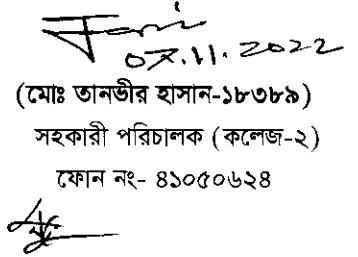 07.11.2022
(মোঃ তানভীর হাসান-১৮৩৮৯)
সহকারী পরিচালক (কলেজ-২)
ফোন নং- ৪১০৫০৬২৪